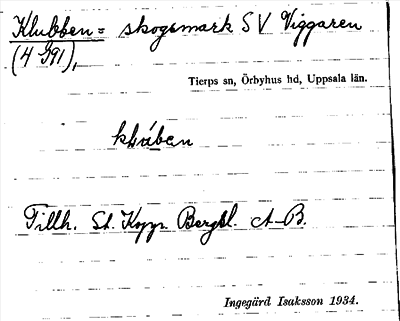 Klubben = skogsmark SV Viggaren
(4 991),
Tierps sn, Örbyhus hd, Uppsala län.
klúben
Tillh. St. Kopp. Bergsl. A-B.
Ingegärd Isaksson 1934.